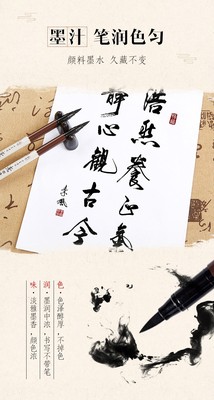 墨汁 笔润色匀
颜料墨水 久藏不变
浩然養正氣
静心觀古今
色·色泽醇厚·不掉色
润·墨润中浓·书写不带笔
味·淡雅墨香·颜色浓